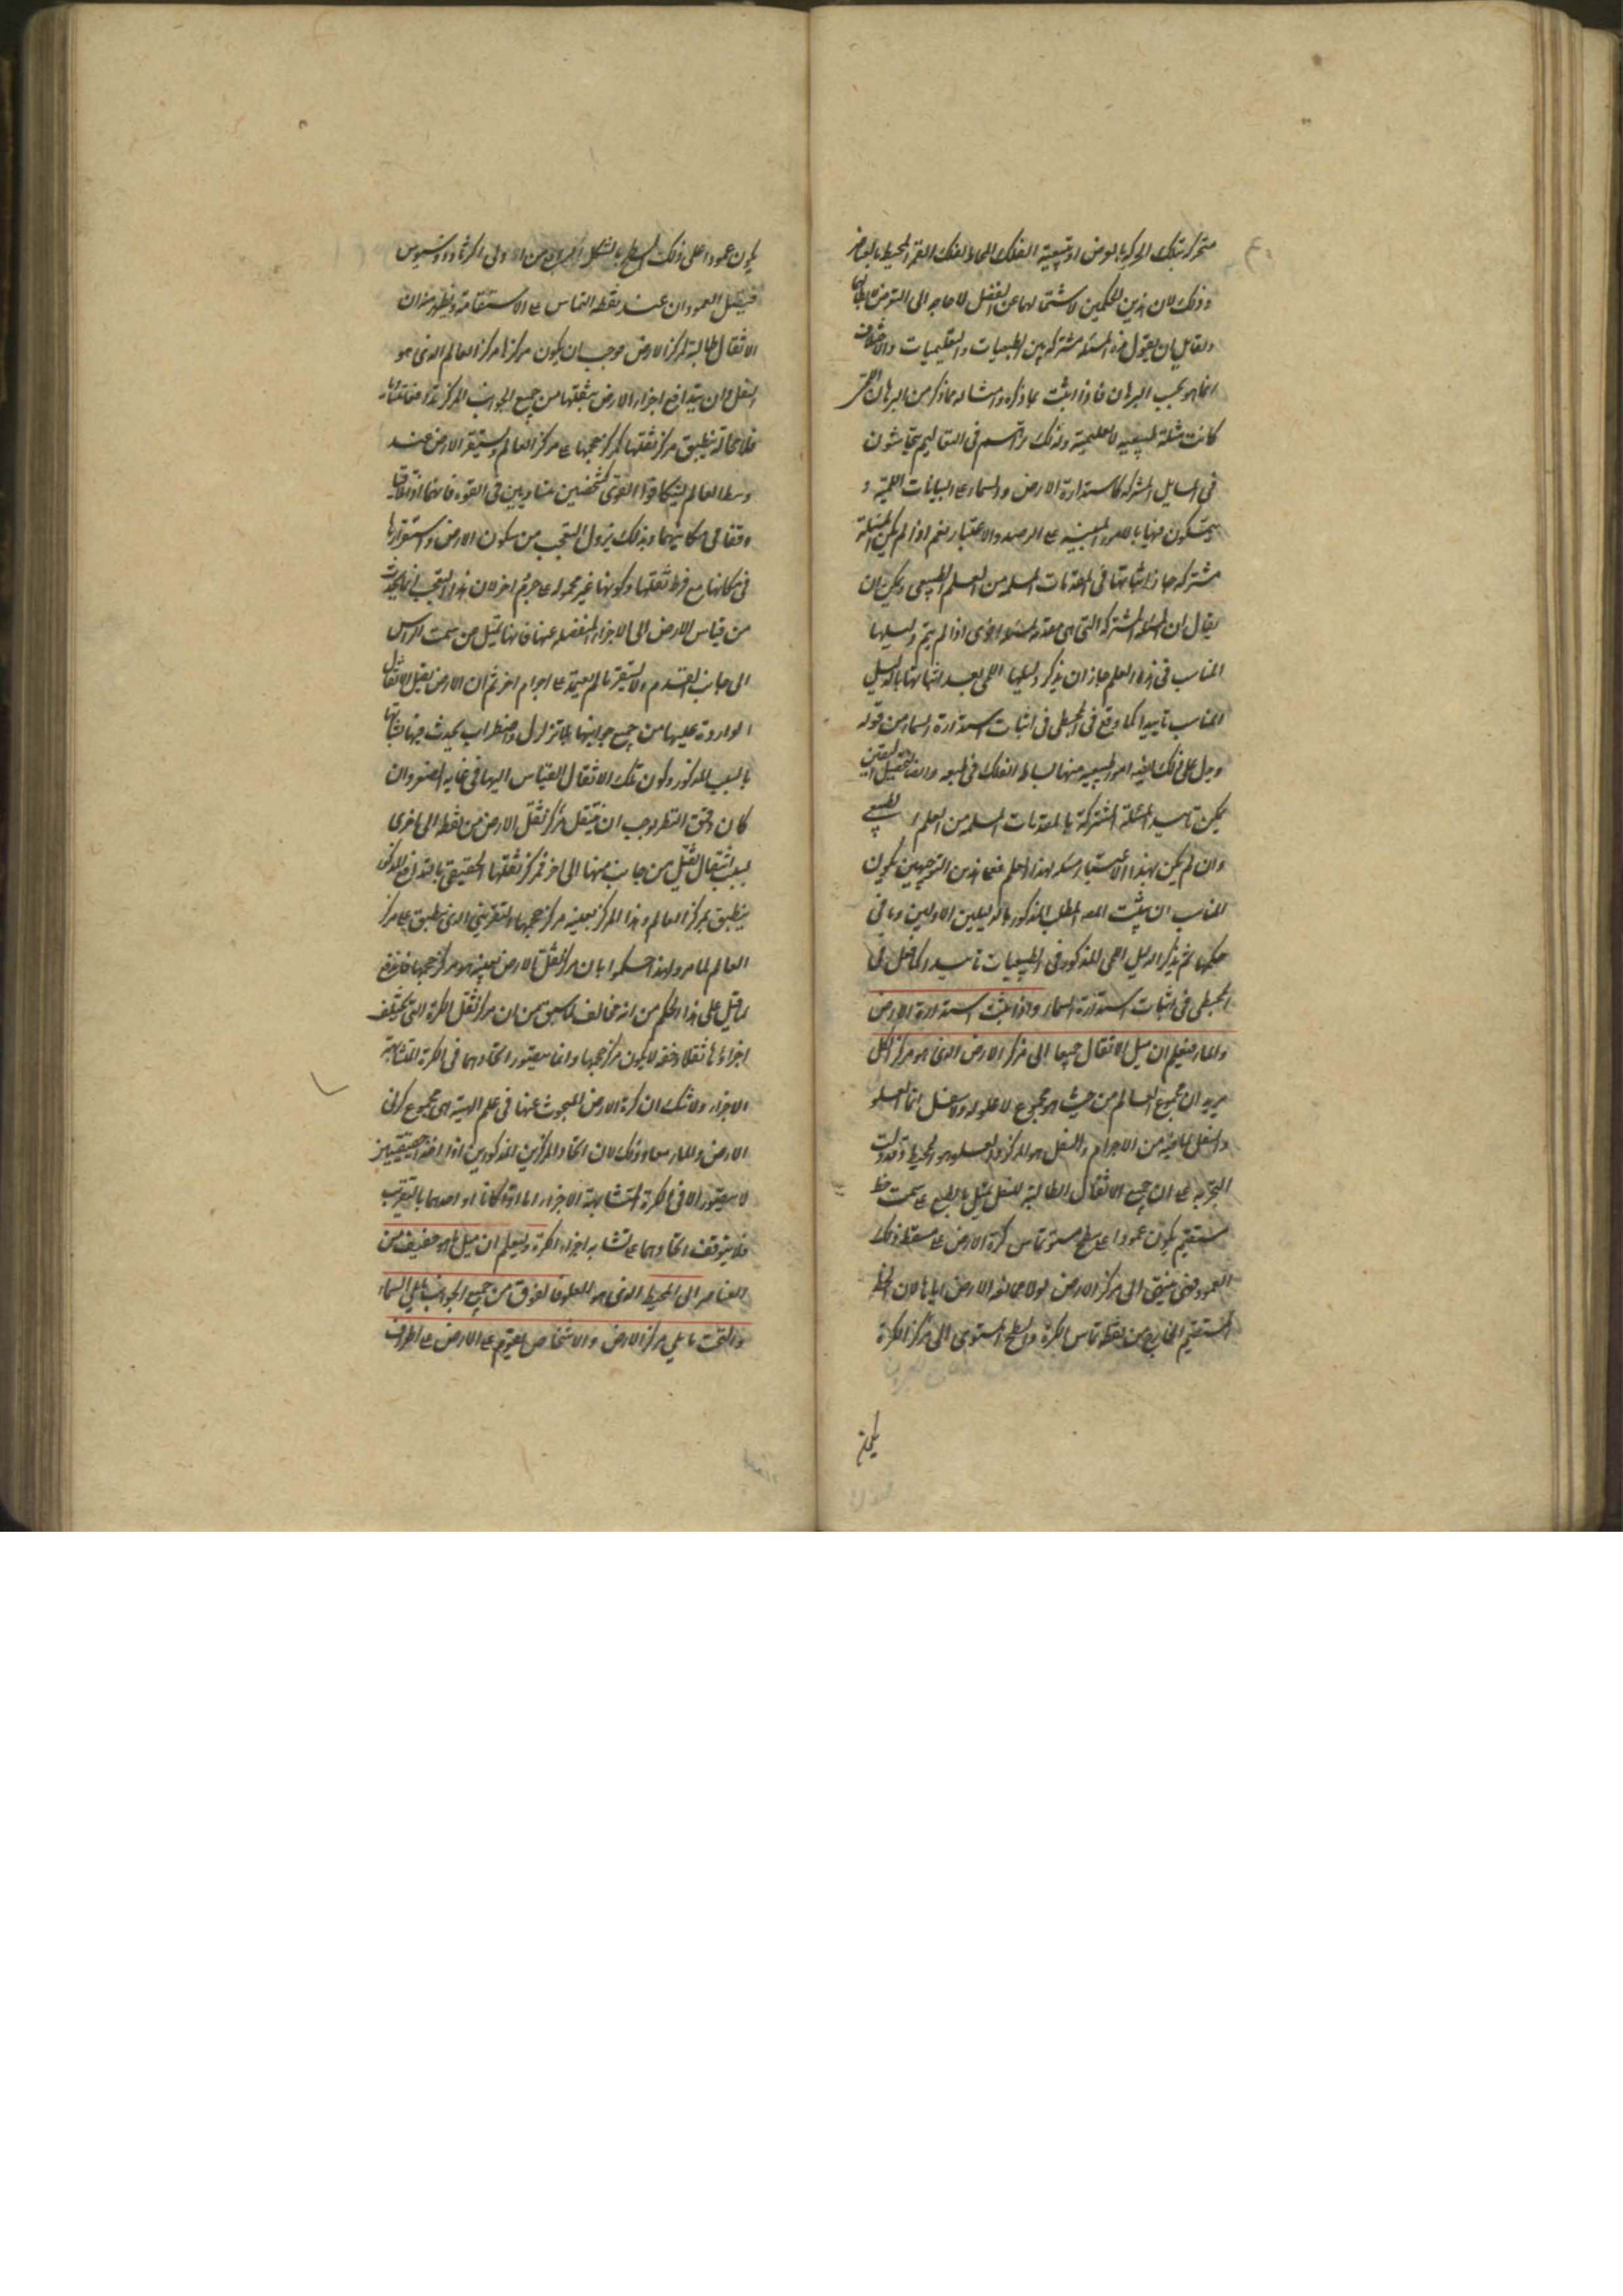 متحركة بتلك الحركة بالعرض او بتبعية الفلك المحاط لفلك القمر المحيط بالعناصر
وذلك لان هذين الحكمين لاشتمالهما عن الفصل لا حاجة الى التعرض لابطالهما
ولقايل ان يقول هذه المسئلة مشتركة بين الطبيعيات والتعليميات والاختلاف
انما هو بحسب البرهان فاذا اثبت بما ذكره وامثاله مما ذكر من البرهان
كانت مسئلة طبيعية لا تعليمية ولذلك تراهم في التعاليم يتحاشون
في المسايل المشتركة كاستدارة الارض والسماء على البيانات اللمية و
يتمسكون فيها بالامور المبنية على الرصد والاعتبار نعم اذا لم يكن المسئلة
مشتركة جاز اثباتها في المقدمات المسلمة من العلم الطبيعي ويمكن ان
يقال ان المسئلة المشتركة التي هي مقدمة لمسئلة اخرى اذا لم يتم دليلها
المناسب في هذه العلم جاز ان يذكر دليلها اللمي بعد اثباتها بالدليل
المناسب تاييدا كما وقع في المجسطي في اثبات استدارة السماء من قوله
ويدل على ذلك ايضا امور طبيعية منها بساطة الفلك في طبعه وايضا لتحصيل اليقين
يمكن تاييد المسئلة المشتركة بالمقدمات المسلمة من العلم الطبيعي
وان لم يكن بهذا الاعتبار مسئلة لهذا العلم فعلى هذين التوجيهين يكون
المناسب ان يثبت المص المطلب المذكور بالدليلين الاولين وما في
حكمهما ثم يذكر الدليل اللمي المذكور في الطبيعيات تاييدا كما فعل في
المجسطي في اثبات استدارة السماء واذا ثبت استدارة الارض
والماء فيعلم ان ميل الاثقال جميعا الى مركز الارض الذي هو مركز الكل
يريد ان مجموع العالم من حيث هو مجموع لا علو له ولا سفل انما العلو
والسفل لما فيه من الاجرام والسفل هو المركز والعلو هو المحيط وقد دلت
التجربة على ان جميع الاثقال الطالبة للسفل يميل بالطبع على سمت خط
مستقيم يكون عمودا على سطح مستو تماس كرة الارض على مسقط ذلك
العمود فهي منتهى الى مركز الارض لولا ممانعة الارض اياها لان الخط
المستقيم الخارج من نقطة تماس الكرة والسطح المستوي الى مركز الكرة
يكون
يكون عمودا على ذلك السطح بالشكل من اولى اكر ثاودوسيوس
فيتصل العمودان عند نقطة التماس على الاستقامة ويظهر منه ان
الاثقال طالبة لمركز الارض موجب ان يكون مركزها مركز العالم الذي هو
السفل وان يتدافع اجزاء الارض بثقلها من جميع الجوانب الى المركز تدافعا متشابها
فلا محالة ينطبق مركز ثقلها لمركز حجمها على مركز العالم ويستقر الارض عند
وسط العالم لتكافؤ القوى كشخصين متساويين في القوة فانهما اذا تلاقيا
وقفا في مكانيهما وبذلك يزول التعجب من سكون الارض واستقرارها
في مكانها مع فرط ثقلها وكونها غير محمولة على جرم اخر لان هذا التعجب انما يحدث
من قياس الارض الى الاجزاء المنفصلة عنها فانها تميل من سمت الراس
الى جانب القدم ولا يستقر ما لم يعتمد على اجرام اخر ثم ان الارض يقبل الاثقال
الواردة عليها من جميع جوانبها بلا تزلزل واضطراب يحدث فيها لثباتها
بالسبب المذكور وكون تلك الاثقال بالقياس اليها في غاية الصغر وان
كان دقيق النظر يوجب ان ينتقل مركز ثقل الارض من نقطة الى اخرى
بسبب انتقال ثقيل من جانب منها الى اخر فمركز ثقلها الحقيقي بالتدافع المذكور
ينطبق بمركز العالم وهذا المركز بعينه مركز حجمها التقريبي الذي ينطبق على مركز
العالم لما مر ولهذا حكموا بان مركز ثقل الارض بعينه هو مركز حجمها فاندفع
ما قيل على هذا الحكم من انه مخالف لما سبق من ان مركز ثقل الكرة التي تختلف
اجزاءها ثقلا وخفة لا يكون مركز حجمها وانما يتصور اتحادهما في الكرة المتشابهة
الاجزاء ولا شك ان كرة الارض المبحوث عنها في علم الهيئة هي مجموع كرتي
الارض والماء معا وذلك لان اتحاد المركزين المذكورين اذا اخذا حقيقيين
لا يتصور الا في الكرة المتشابهة الاجزاء اما اذا كانا او احدهما بالتقريب
فلا يتوقف اتحادهما على تشابه اجزاء الكرة وليعلم ان ميل ما هو خفيف من
العناصر الى المحيط الذي هو العلو فالفوق من جميع الجوانب ما يلي السماء
والتحت ما يلي مركز الارض والاشخاص يقوم على الارض على اطراف